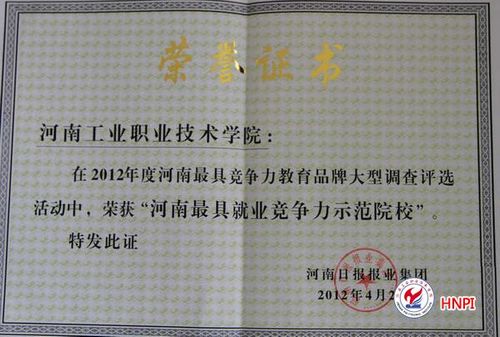 荣誉证书
河南工业职业技术学院：
在2012年度河南最具竞争力教育品牌大型调查评选
活动中，荣获“河南最具就业竞争力示范院校”。
特发此证
河南日报报业集团
2012年4月2
HNPI